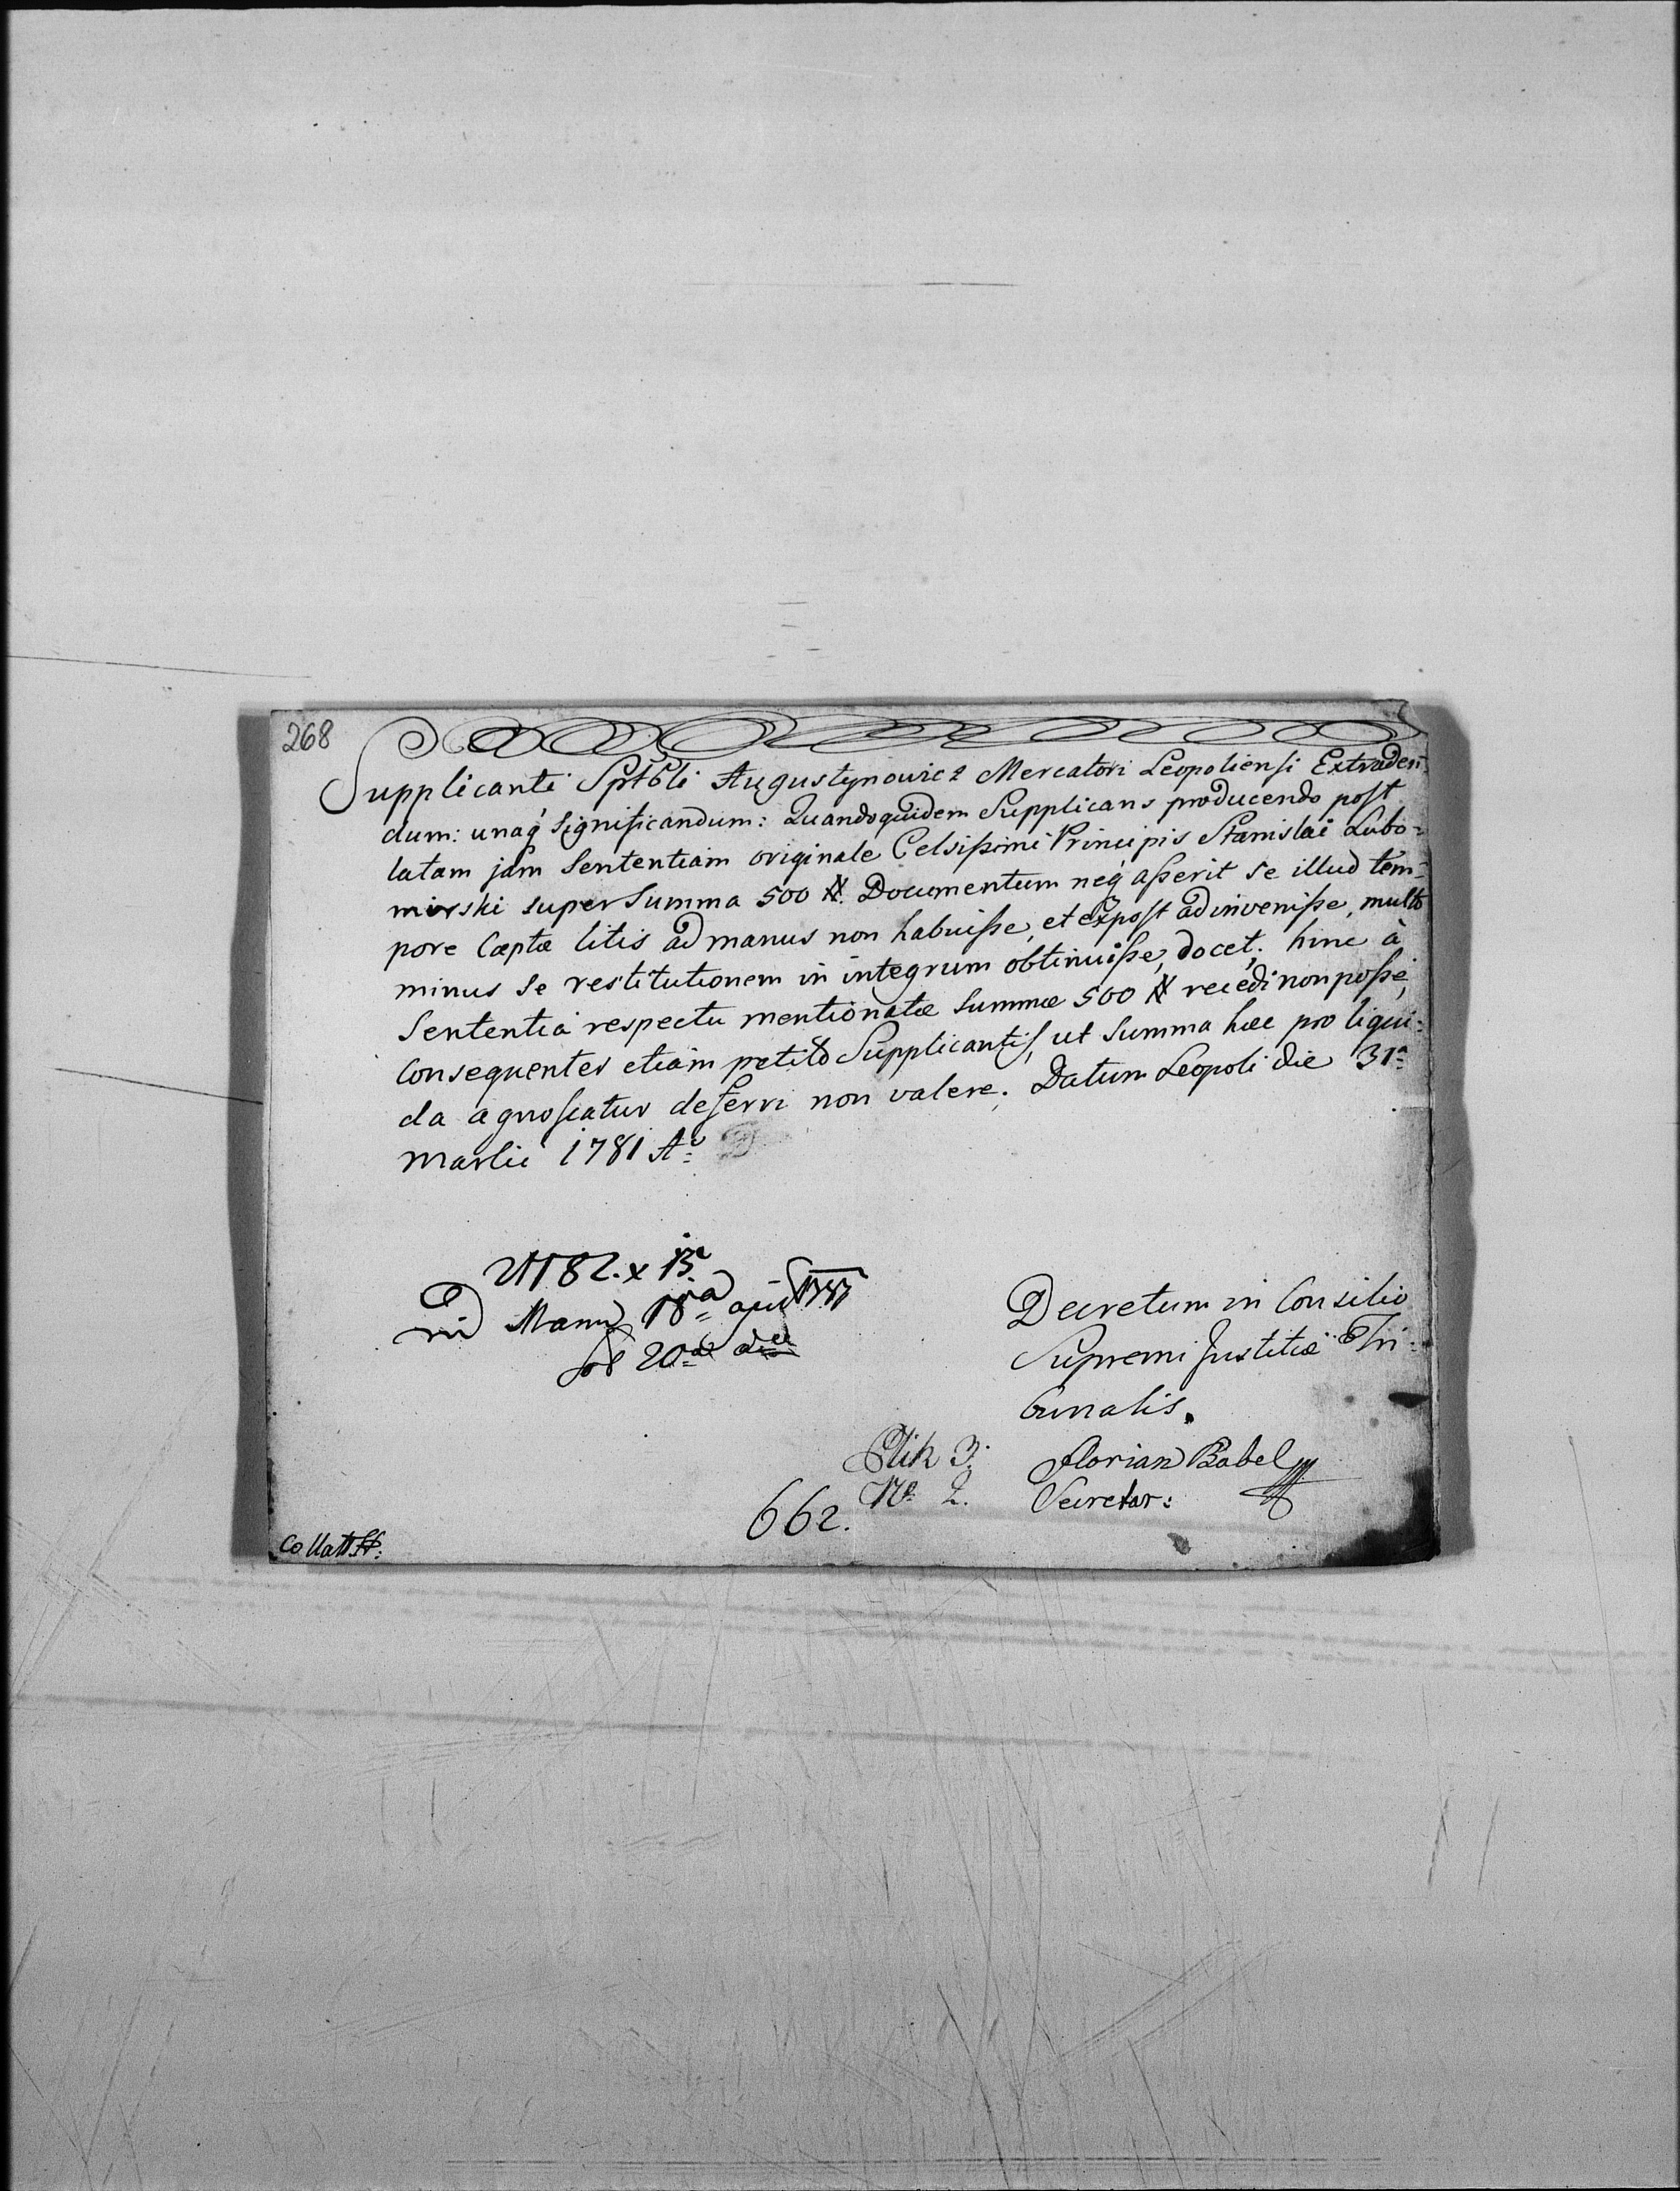 268
Supplicanti Sptbli Augustynowicz Mercatori Leopoliensi Extraden=
dum: unaq́ Significandum: Quandoquidem Supplicans producendo post
latam jam Sententiam originale Celsissimi Principis Stanislai Lubo=
mirski super Summa 500 #. Documentum neq́ asserit se illud tem=
pore Cœptæ litis ad manus non habuisse, et expost adinvenisse, multo
minus se restitutionem in integrum obtinuisse, docet; hinc à
Sententiâ respectu mentionatæ Summæ 500 # recedi non posse,
Consequenter etiam petito Supplicantis, ut Summa hæc pro liqui=
da agnoscatur deferri non valere. Datum Leopoli die 31ª
Martii 1781 Aº
Decretum in Consilio
Supremi Justitiæ Tri=
bunalis.
Plik 3.
Florian Babel
Nº 2.
Secretar:
662.
Collatt